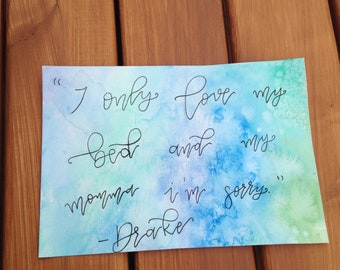 "I only love my
bed and my
momma i'm sorry."
-Drake